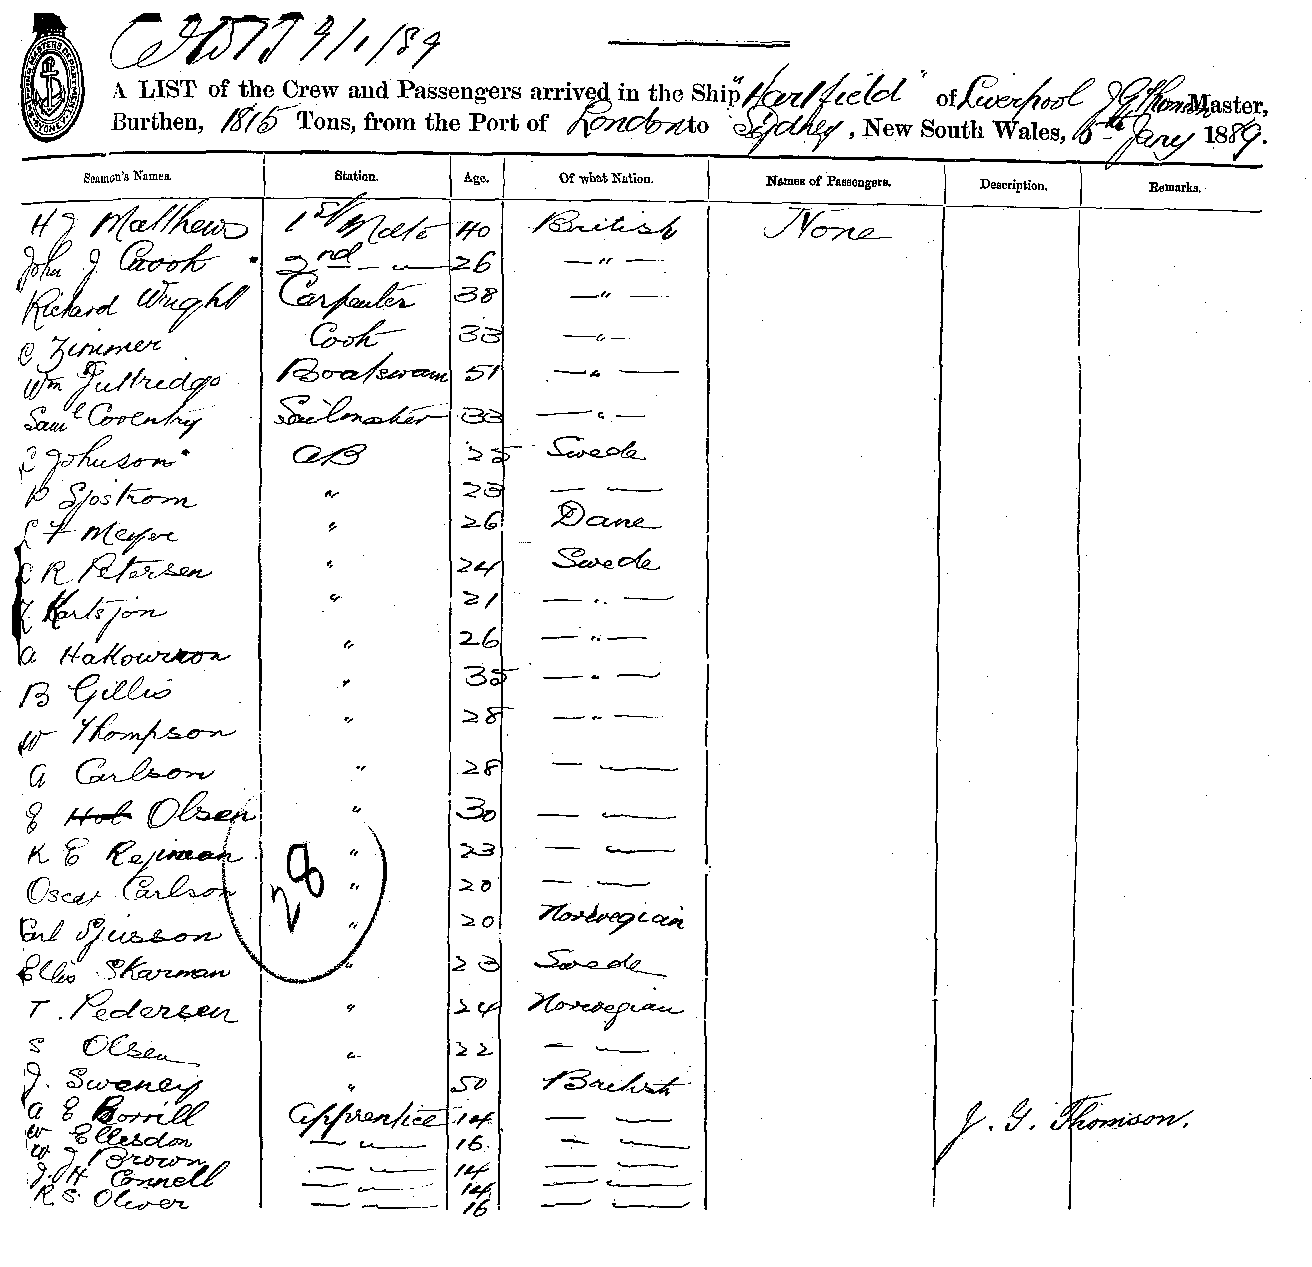 9/1/89
A LIST of the Crew and Passengers arrived in the Ship "Hartfield" of Liverpool J G Thomson Master,
Burthen, 1815 Tons, from the Port of London to Sydney, New South Wales, 5th Jany 1889.
Seamen's Names. Station. Age. Of what Nation. Names of Passengers. Description. Remarks.
H J Matthews 1st Mate 40 British None
John J Crook 2nd — " — 26 — " —
Richard Wright Carpenter 38 — " —
C Zimmer Cook 33 — " —
Wm Guttridge Boatswain 51 — " —
Saml Coventry Sailmaker 33 — " —
Johnson AB 25 Swede
P Sjostrom " 23 — —
F Meyer " 26 Dane
C R Petersen " 24 Swede
Karlsjon " 21 — " —
A " 26 — " —
B Gillis " 35 — " —
W Thompson " 28 — " —
A Carlson " 28 — —
E Olsen " 30 — —
K E " 23 — —
Oscar Carlson " 20 — —
Carl " 20 Norwegian
Ellis Skarman " 23 Swede
T. Pedersen " 24 Norwegian
S Olsen " 22 — —
J. Sweney " 50 British
A E Borrill Apprentice 14 — —
W Ellesdon — — 16 — —
W J Brown — — 14 — —
J. H Connell — — 14 — —
R S. Oliver — — 16 — —
28
J. G. Thomson.